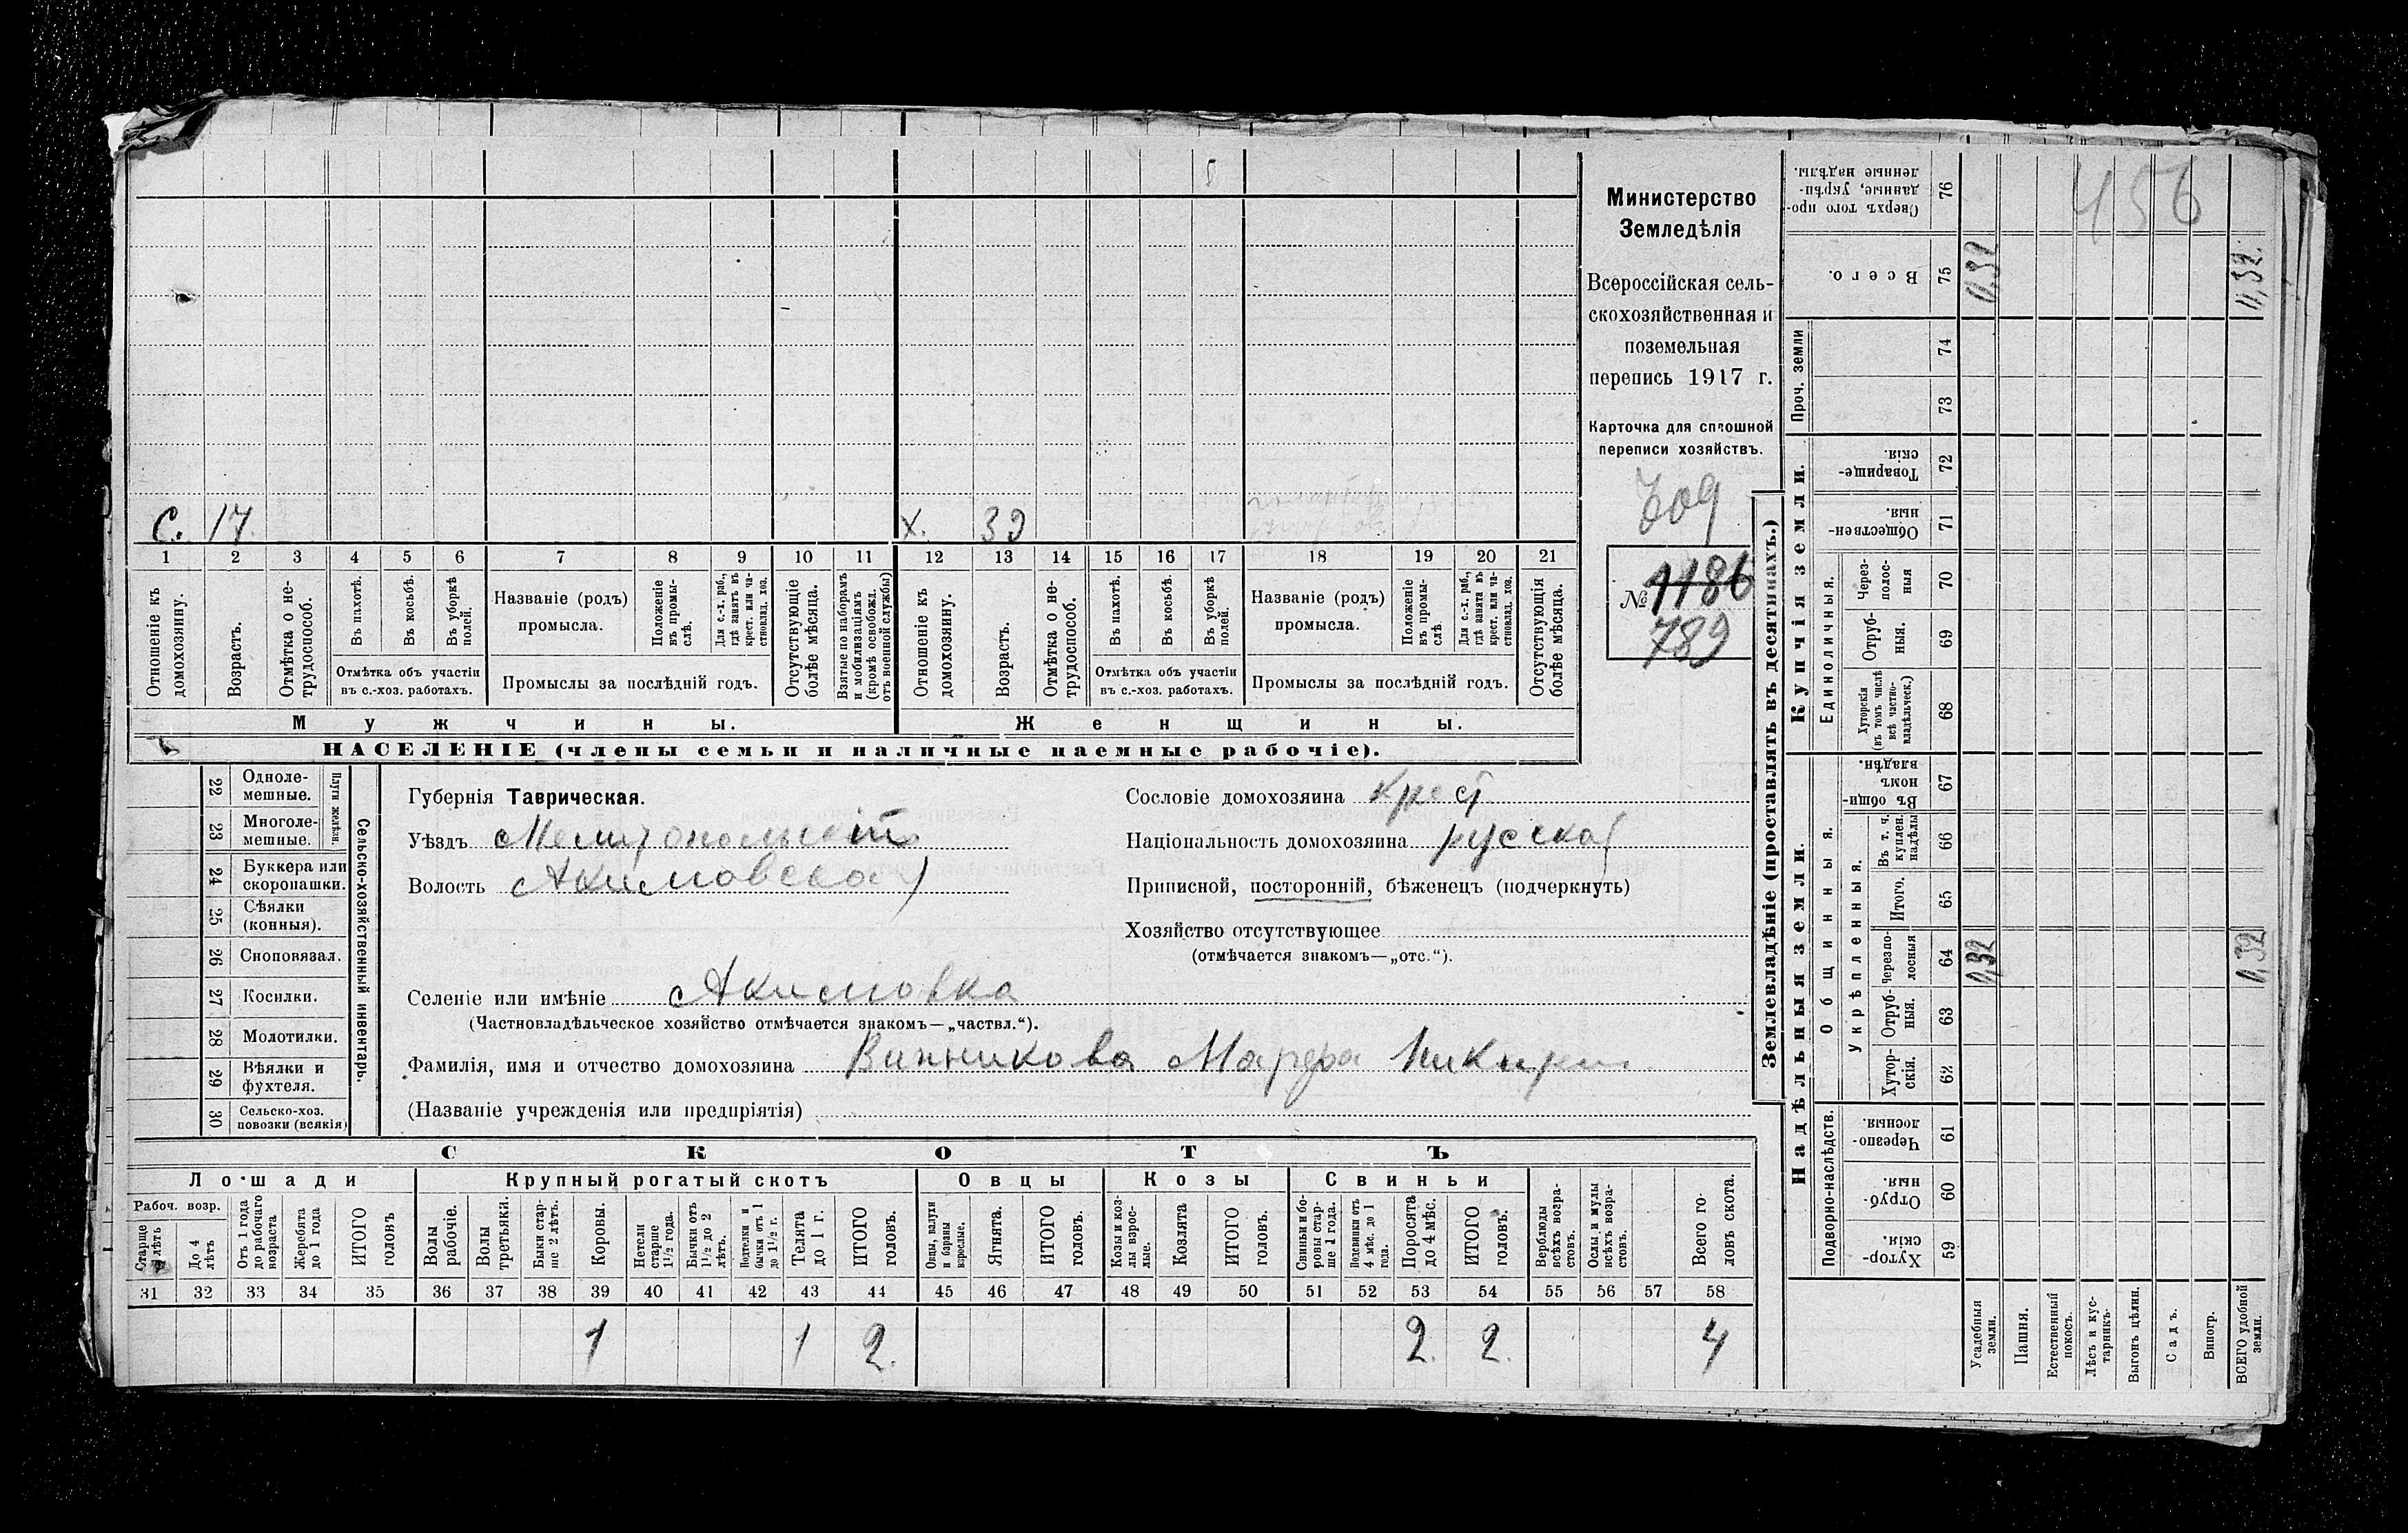 456
Министерство
Земледѣлія
Всероссійская сель-
скохозяйственная и
поземельная
перепись 1917 г.
Карточка для сплошной
переписи хозяйствъ.
709
№ 1186
789
С. 17. х. 39
1 2 3 4 5 6 7 8 9 10 11 12 13 14 15 16 17 18 19 20 21
Отношеніе къ домохозяину.
Возрастъ.
Отмѣтка о не-
трудоспособ.
Въ пахотѣ.
Въ косьбѣ.
Въ уборкѣ полей.
Отмѣтка объ участіи
въ с.-хоз. работахъ.
Названіе (родъ)
промысла.
Положеніе
въ промы-
слѣ.
Для с.-х. раб.,
гдѣ занятъ въ
крест. или ча-
стновлад. хоз.
Промыслы за послѣдній годъ.
Отсутствующіе
болѣе мѣсяца.
Взятые по наборамъ
и мобилизаціямъ
(кромѣ освобожд.
отъ военной службы)
Отношеніе къ
домохозяину.
Возрастъ.
Отмѣтка о не-
трудоспособ.
Въ пахотѣ.
Въ косьбѣ.
Въ уборкѣ
полей.
Отмѣтка объ участіи
въ с.-хоз. работахъ.
Названіе (родъ)
промысла.
Положеніе
въ промы-
слѣ.
Для с.-х. раб.,
гдѣ занята въ
крест. или ча-
стновлад. хоз.
Промыслы за послѣдній годъ.
Отсутствующія
болѣе мѣсяца.
Мужчины. Женщины.
НАСЕЛЕНІЕ (члены семьи и наличные наемные рабочіе).
22 Одноле-
мешные.
23 Многоле-
мешные.
Плуги желѣзн.
24 Буккера или
скоропашки.
25 Сѣялки
(конныя).
26 Сноповязал.
27 Косилки.
28 Молотилки.
29 Вѣялки и
фухтеля.
30 Сельско-хоз.
повозки (всякія)
Сельско-хозяйственный инвентарь.
Губернія Таврическая.
Уѣздъ Мелитопольскій
Волость Акимовская
Сословіе домохозяина крест
Національность домохозяина русская
Приписной, посторонній, бѣженецъ (подчеркнуть)
Хозяйство отсутствующее
(отмѣчается знакомъ—„отс.“).
Селеніе или имѣніе Акимовка
(Частновладѣльческое хозяйство отмѣчается знакомъ—„частвл.“).
Фамилія, имя и отчество домохозяина Винникова Марфа Никит
(Названіе учрежденія или предпріятія)
СКОТЪ
Лошади Крупный рогатый скотъ Овцы Козы Свиньи
Рабоч. возр.
Старше
4 лѣтъ
До 4
лѣтъ
Отъ 1 года
до рабочаго
возраста
Жеребята
до 1 года
ИТОГО
головъ
Волы
рабочіе.
Волы
третьяки.
Быки стар-
ше 2 лѣтъ.
Коровы.
Нетели
старше
1½ года.
Бычки отъ
1½ до 2
лѣтъ.
Подтелки и
бычки отъ 1
до 1½ г.
Телята
до 1 г.
ИТОГО
головъ.
Овцы, валухи
и бараны
взрослые.
Ягнята.
ИТОГО
головъ.
Козы и коз-
лы взрос-
лые.
Козлята
ИТОГО
головъ.
Свиньи и бо-
ровы стар-
ше 1 года.
Подсвинки отъ
4 мѣс. до 1
года.
Поросята
до 4 мѣс.
ИТОГО
головъ.
Верблюды
всѣхъ возра-
стовъ.
Ослы и мулы
всѣхъ возра-
стовъ.
Всего го-
ловъ скота.
31 32 33 34 35 36 37 38 39 40 41 42 43 44 45 46 47 48 49 50 51 52 53 54 55 56 57 58
1 1 2. 2. 2. 4
Землевладѣніе (проставлять въ десятинахъ.)
Надѣльныя земли. Купчія земли.
Подворно-наслѣдств.
Хутор-
скія. 59
Отруб-
ныя. 60
Черезпо-
лосныя. 61
Общинныя.
Укрѣпленныя.
Хутор-
скія. 62
Отруб-
ныя. 63
Черезпо-
лосныя 64
Итого. 65
Въ т. ч.
куплен.
надѣлы 66
Въ общи-
номъ
владѣн. 67
Единоличныя.
Хуторскія
(въ томъ числѣ
всѣ частно-
владѣльческ.) 68
Отруб-
ныя. 69
Через-
полос-
ныя 70
Обществен-
ныя. 71
Товарище-
скія. 72
Проч. земли
73
74
Всего. 75
Сверхъ того про-
данные, укрѣп-
ленные надѣлы. 76
Усадебныя
земли.
Пашня.
Естественный
покосъ.
Лѣсъ и кус-
тарникъ.
Выгонъ цѣлин.
Садъ.
Виногр.
ВСЕГО удобной
земли.
0,32 0,32
0,32 0,32.